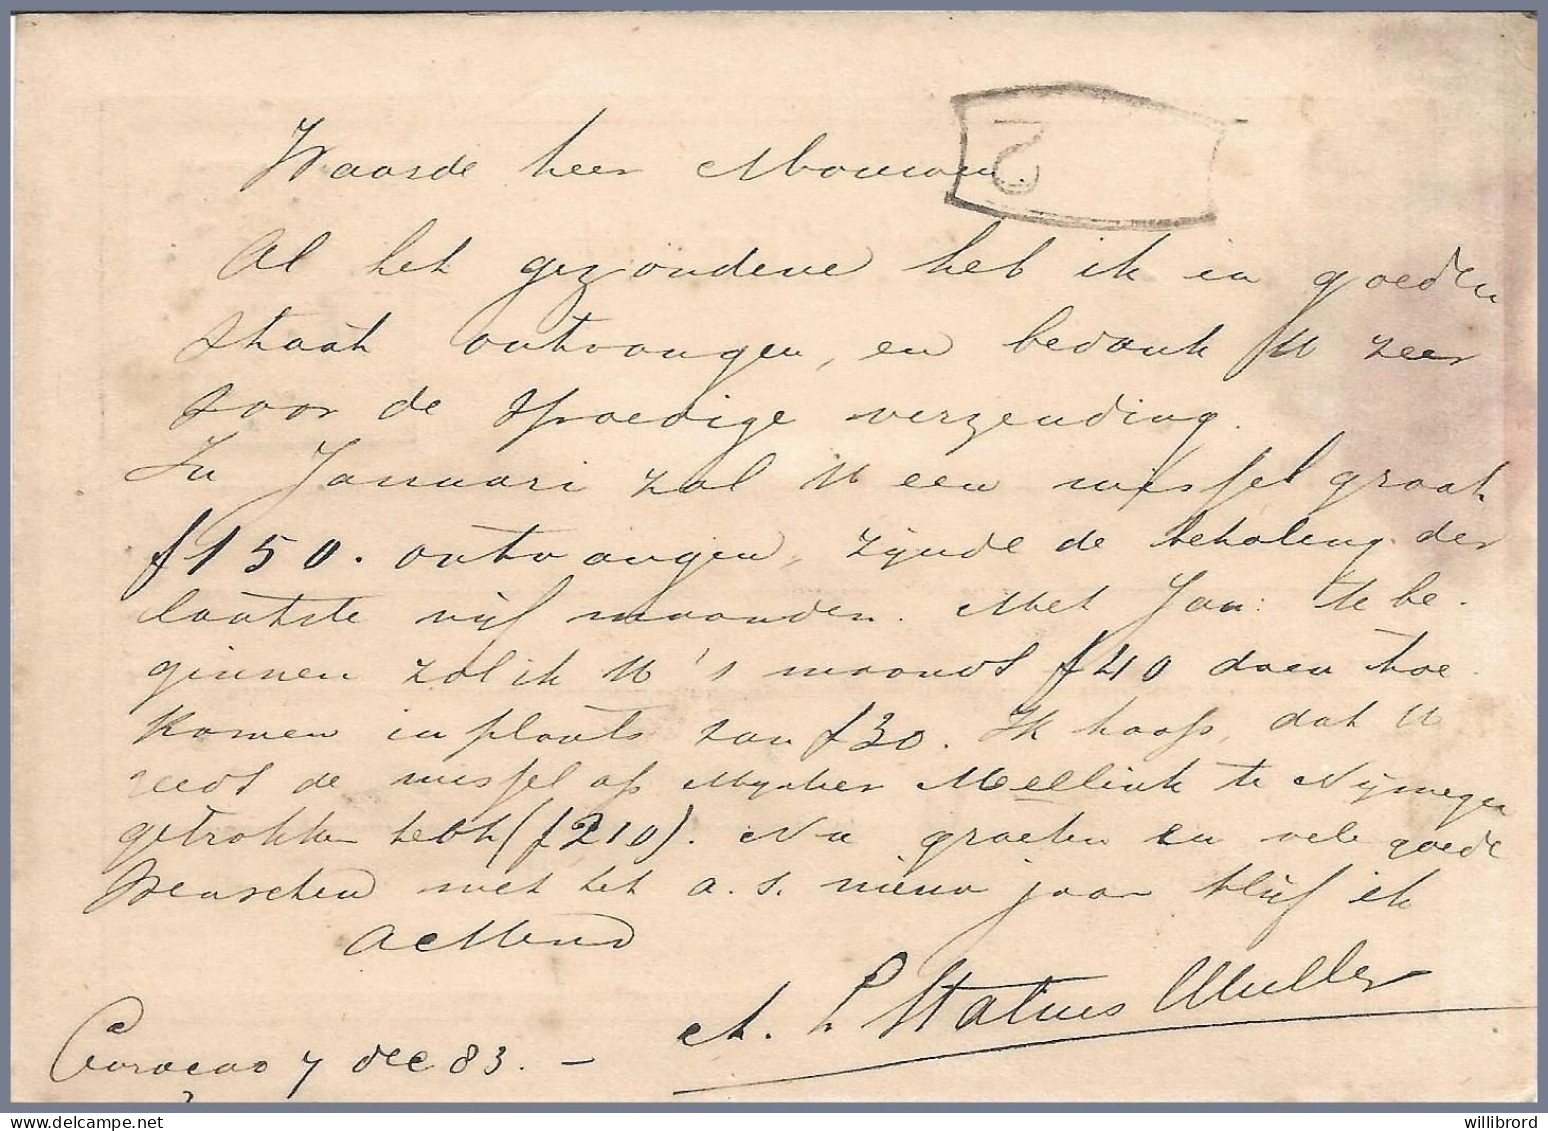 Waarde heer Mouwen.
2
Al het gezondene heb ik in goeden
staat ontvangen, en bedank U zeer
voor de spoedige verzending.
In Januari zal U een wissel groot
f 150. ontvangen, zijnde de betaling der
laatste vijf maanden. Met Jan: te be-
ginnen zal ik U 's maands f 40 doen toe
komen in plaats van f 30. Ik hoop, dat U
reeds de wissel op Mijnheer Meellink te Nijmegen
getrokken hebt (f 210). Na groeten en vele goede
Wenschen met het a. s. nieuw jaar blijf ik
Achtend
A. L. Statius Muller
Curaçao 7 dec 83. –
willibrord